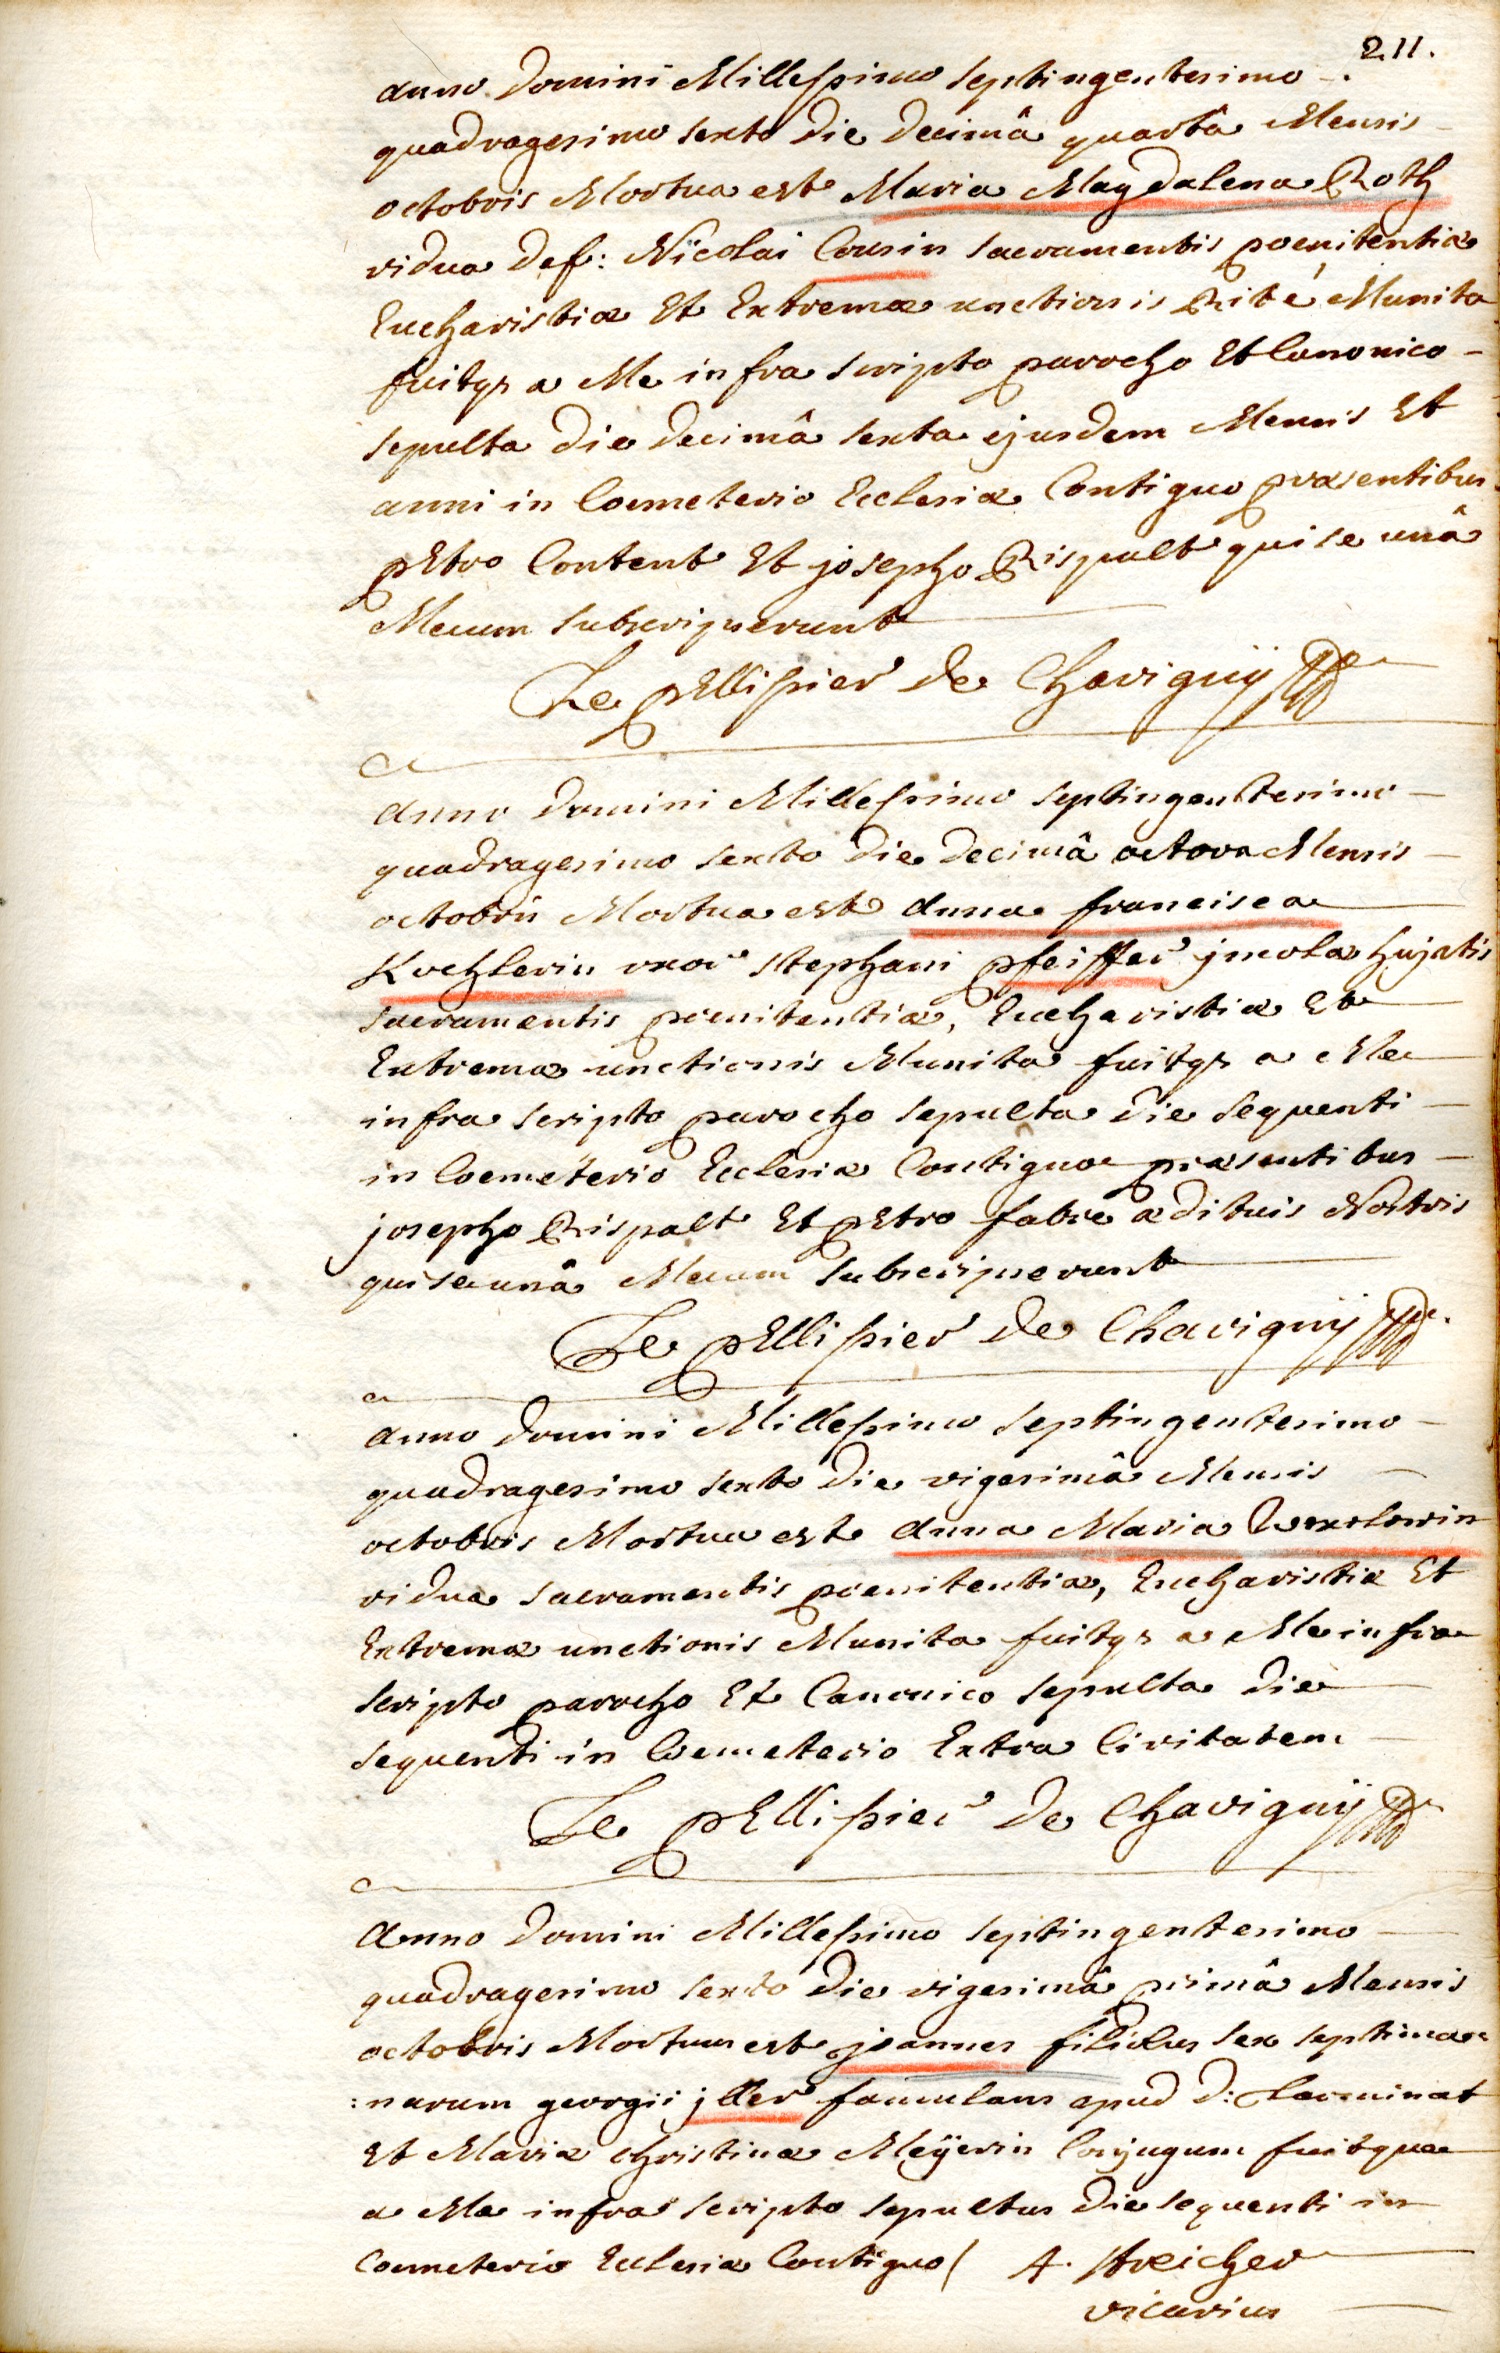 211.
anno Domini Millessimo septingentesimo -
quadragesimo sexto die decimâ quartâ Mensis
octobris Mortua est Maria Magdalena Roth
vidua def: Nicolai Cousin sacramentis poenitentiæ
Eucharistiæ Et Extremæ unctionis Rité Munita
fuitqz a Me infra scripto parocho Et Canonico -
sepulta die decimâ sexta ejusdem Mensis Et
anni in Coemeterio Ecclesiæ Contiguo præsentibus
pEtro Content Et josepho Rispalt qui se unâ
Mecum subscripserunt
Le pEllissier de Chavignÿ
anno Domini Millessimo septingentesimo -
quadragesimo sexto die decimâ octava Mensis -
octobris Mortua est anna francisca
Kochlerin uxor stephani pfeiffer jncola hujatis
sacramentis poenitentiæ, Eucharistiæ Et
Extremæ unctionis Munita fuitqz a Me
infra scripto parocho sepulta die sequenti -
in Coemeterio Ecclesiæ Contiguo præsentibus -
josepho Rispalt Et pEtro fabre ædituis Nostris
qui se unâ Mecum subscripserunt
Le pEllissier de Chavignÿ
anno Domini Millessimo septingentesimo -
quadragesimo sexto die vigesimâ Mensis -
octobris Mortua est anna Maria
vidua sacramentis poenitentiæ, Eucharistiæ Et
Extremæ unctionis Munita fuitqz a Me infra
scripto parocho Et Canonico sepulta die
sequenti in Coemeterio Extra Civitatem
Le pEllissier de Chavignÿ
Anno Domini Millessimo septingentesimo
quadragesimo sexto die vigesimâ primâ Mensis
octobris Mortuus est joannes filiolus sex septima=
:narum georgii jller famulans apud d:
Et Mariæ Christinæ Meÿerin Conjugum fuitque
a Me infra scripto sepultus die sequenti in
Coemeterio Ecclesiæ Contiguo / A. Streicher
vicarius